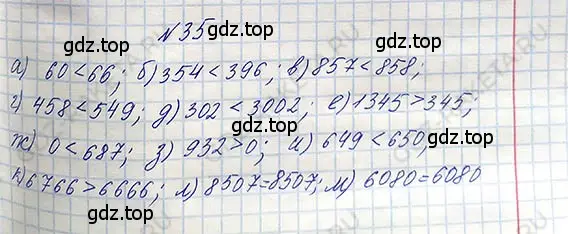 gdz.top gdz.top
№35
а) 60 < 66; б) 354 < 396; в) 857 < 858;
г) 458 < 549; д) 302 < 3002; е) 1345 > 345;
gdz.top gdz.top
ж) 0 < 687; з) 932 > 0; и) 649 < 650,
к) 6766 > 6666; л) 8507 = 8507; м) 6080 = 6080
gdz.top gdz.top